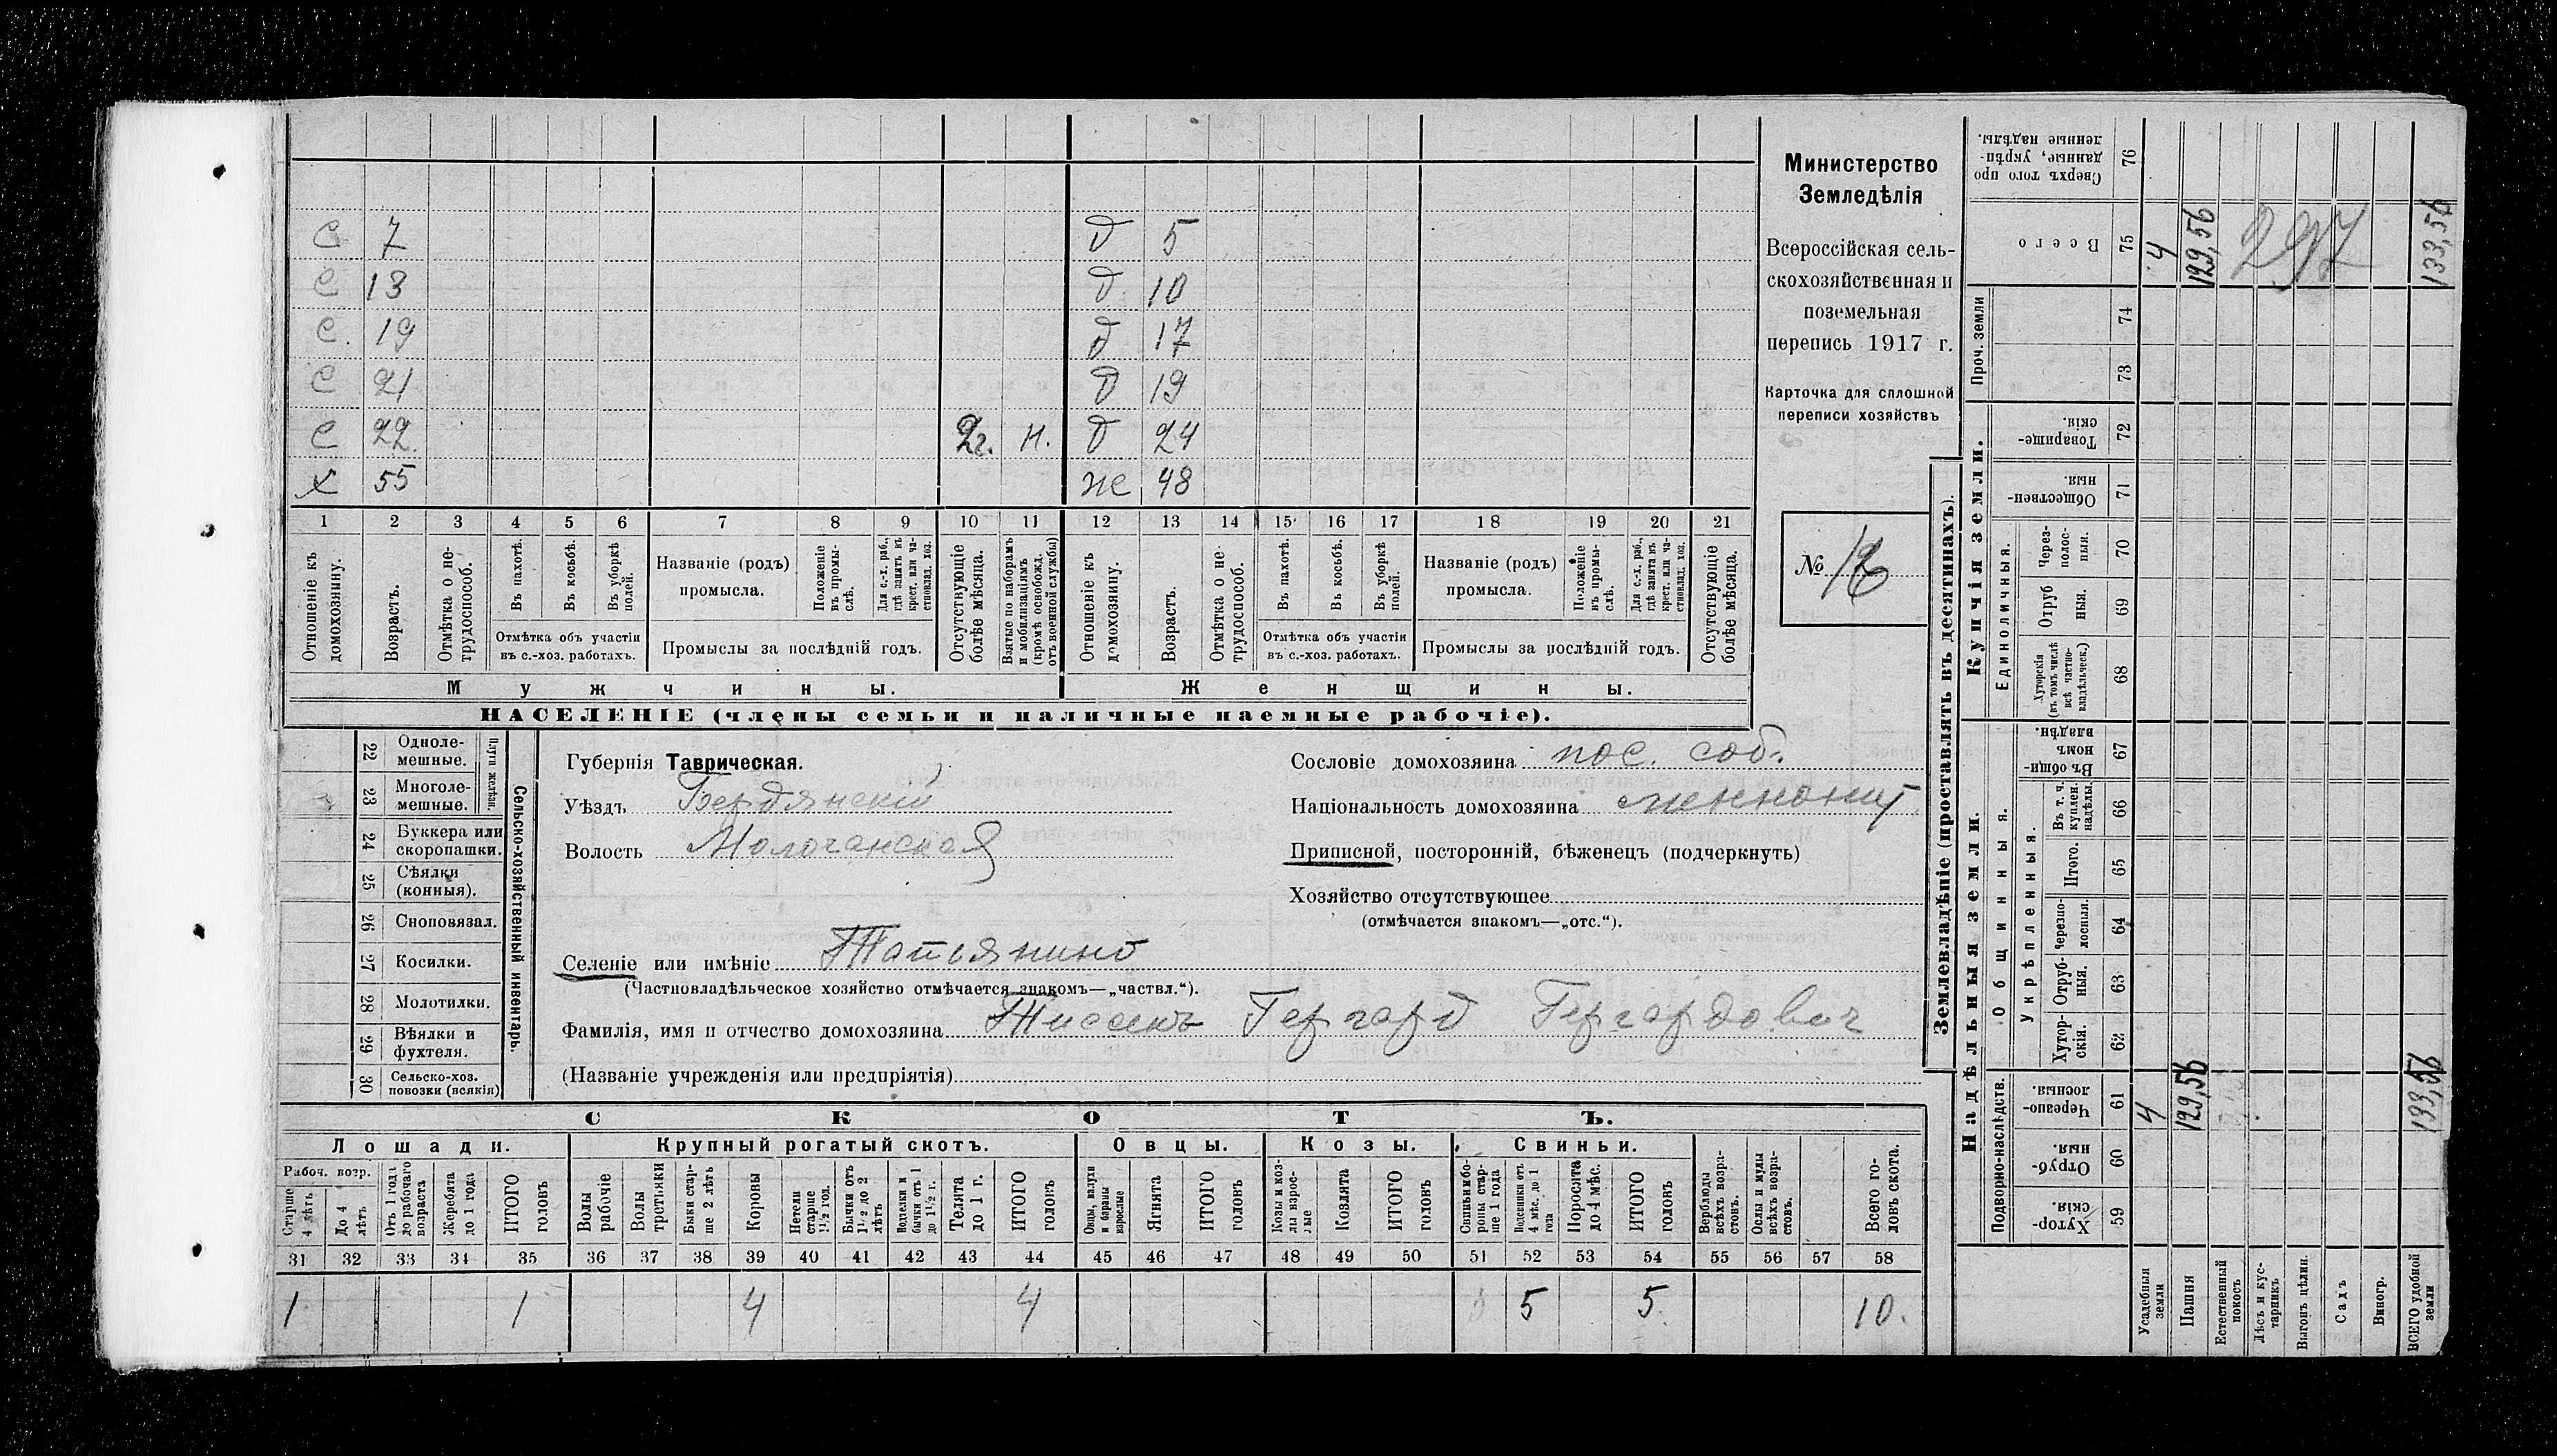 С 7 Д 5
С 13 Д 10
С. 19 Д 17
С 21 Д 19
С 22. 2г. н. Д 24
х 55 же 48
1 2 3 4 5 6 7 8 9 10 11 12 13 14 15 16 17 18 19 20 21
Отношеніе къ домохозяину.
Возрастъ.
Отмѣтка о не-трудоспособ.
Въ пахотѣ.
Въ косьбѣ.
Въ уборкѣ полей.
Отмѣтка объ участіи въ с.-хоз. работахъ.
Названіе (родъ) промысла.
Положеніе въ промы-слѣ.
Для с.-х. раб., гдѣ занятъ въ крест. или ча-стновлад. хоз.
Промыслы за послѣдній годъ.
Отсутствующіе болѣе мѣсяца.
Взятые по наборамъ и мобилизаціямъ (кромѣ освобожд. отъ военной службы)
Отношеніе къ домохозяину.
Возрастъ.
Отмѣтка о не-трудоспособ.
Въ пахотѣ.
Въ косьбѣ.
Въ уборкѣ полей.
Отмѣтка объ участіи въ с.-хоз. работахъ.
Названіе (родъ) промысла.
Положеніе въ промы-слѣ.
Для с.-х. раб., гдѣ занята въ крест. или ча-стновлад. хоз.
Промыслы за послѣдній годъ.
Отсутствующіе болѣе мѣсяца.
Мужчины. Женщины.
НАСЕЛЕНІЕ (члены семьи и наличные наемные рабочіе).
Министерство
Земледѣлія
Всероссійская сель-
скохозяйственная и
поземельная
перепись 1917 г.
Карточка для сплошной
переписи хозяйствъ
№
22 Одноле-мешные.
23 Многоле-мешные.
Плуги желѣзн.
24 Буккера или скоропашки.
25 Сѣялки (конныя).
26 Сноповязал.
27 Косилки.
28 Молотилки.
29 Вѣялки и фухтеля.
30 Сельско-хоз. повозки (всякія)
Сельско-хозяйственный инвентарь.
Губернія Таврическая.
Уѣздъ Бердянскій
Волость Молочанская
Сословіе домохозяина пос. соб.
Національность домохозяина меннонит
Приписной, посторонній, бѣженецъ (подчеркнуть)
Хозяйство отсутствующее
(отмѣчается знакомъ—„отс.“).
Селеніе или имѣніе Татьянино
(Частновладѣльческое хозяйство отмѣчается знакомъ—„частвл.“).
Фамилія, имя и отчество домохозяина Тиссенъ Гергард Гергардович
(Названіе учрежденія или предпріятія)
СКОТЪ.
Лошади. Крупный рогатый скотъ. Овцы. Козы. Свиньи.
Рабоч. возр.
Старше 4 лѣтъ
До 4 лѣтъ
Отъ 1 года до рабочаго возраста
Жеребята до 1 года
ИТОГО головъ
Волы рабочіе
Волы третьяки
Быки стар-ше 2 лѣтъ
Коровы
Нетели старше 1½ год.
Бычки отъ 1½ до 2 лѣтъ
Нетели и бычки отъ 1 до 1½ г.
Телята до 1 г.
ИТОГО головъ
Овцы, валухи и бараны взрослые
Ягнята
ИТОГО головъ
Козы и коз-лы взрос-лые
Козлята
ИТОГО головъ
Свиньи и бо-ровы стар-ше 1 года
Подсвинки отъ 4 мѣс. до 1 года
Поросята до 4 мѣс.
ИТОГО головъ
Верблюды всѣхъ возра-стовъ.
Ослы и мулы всѣхъ возра-стовъ.
Всего го-ловъ скота.
31 32 33 34 35 36 37 38 39 40 41 42 43 44 45 46 47 48 49 50 51 52 53 54 55 56 57 58
1 1 4 4 5 5. 10.
Землевладѣніе (проставлять въ десятинахъ).
Купчія земли.
Надѣльныя земли.
Сверхъ того про-данные, укрѣп-ленные надѣлы. 76
Всего 75 4 129,56 297 133,56
Проч. земли 74
73
Товарище-скія. 72
Обществен-ныя. 71
Единоличныя.
Черезполос-ныя. 70
Отруб ныя. 69
Хуторскія (въ томъ числѣ всѣ частно-владѣльческ.) 68
Общинныя.
Въ общи-номъ владѣн. 67
Укрѣпленныя.
Въ т. ч. куплен. надѣлы. 66
Итого. 65
Черезпо-лосныя. 64
Отруб-ныя. 63
Хутор-скія. 62
Подворно-наслѣдств.
Черезпо-лосныя. 61 4 129,56 133,56
Отруб-ныя. 60
Хутор-скія. 59
Усадебныя земли
Пашня
Естественный покосъ
Лѣсъ и кус-тарникъ
Выгонъ цѣлин.
Садъ
Виногр.
ВСЕГО удобной земли